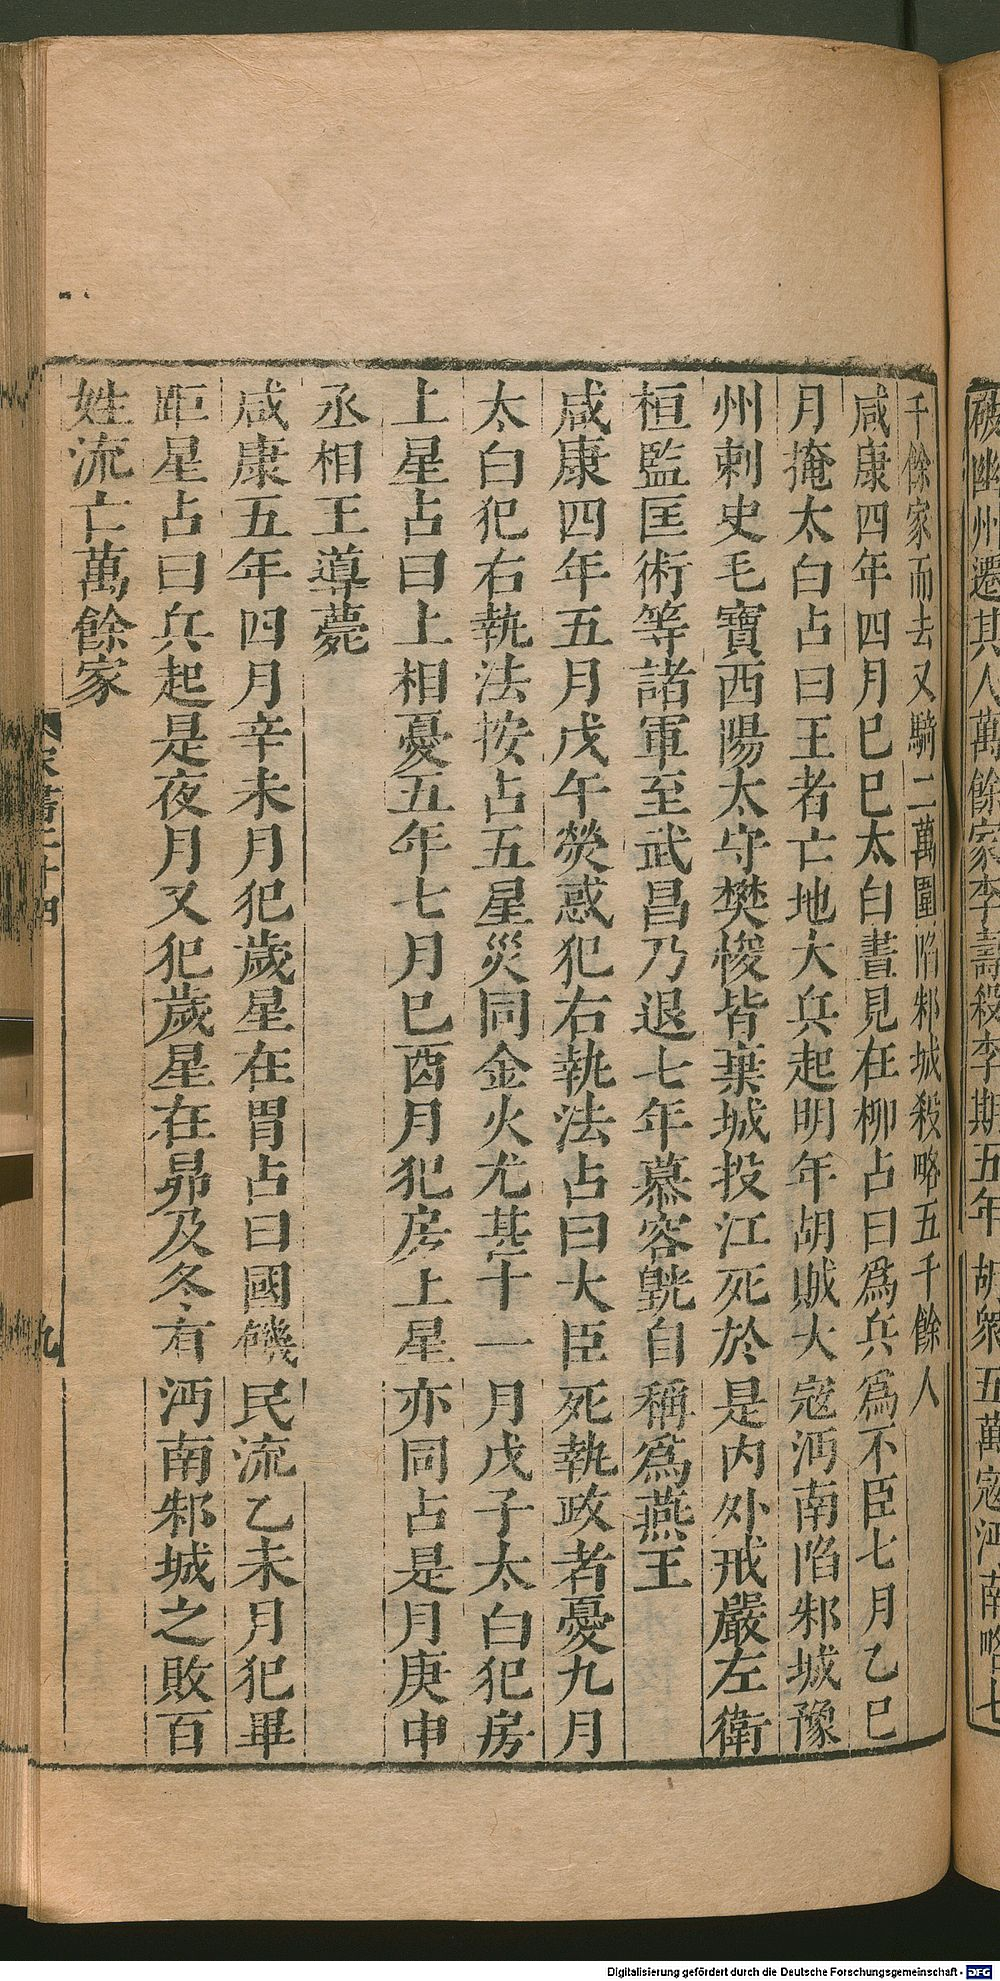 被幽州遷其人萬餘家李壽殺李期五年胡衆五萬寇沔南略七
千餘家而去又騎二萬圍陷邾城殺略五千餘人
咸康四年四月巳巳太白晝見在柳占曰爲兵爲不臣七月乙巳
月掩太白占曰王者亡地大兵起明年胡賊大寇沔南陷邾城豫
州刺史毛寶西陽太守樊悛皆棄城投江死於是內外戒嚴左衛
桓監匡術等諸軍至武昌乃退七年慕容皝自稱爲燕王
咸康四年五月戊午熒惑犯右執法占曰大臣死執政者憂九月
太白犯右執法按占五星災同金火尤甚十一月戊子太白犯房
上星占曰上相憂五年七月巳酉月犯房上星亦同占是月庚申
丞相王導薨
咸康五年四月辛未月犯歲星在胃占曰國饑民流乙未月犯畢
距星占曰兵起是夜月又犯歲星在昴及冬有沔南邾城之敗百
姓流亡萬餘家
宋書二十四
九
Digitalisierung gefördert durch die Deutsche Forschungsgemeinschaft - DFG